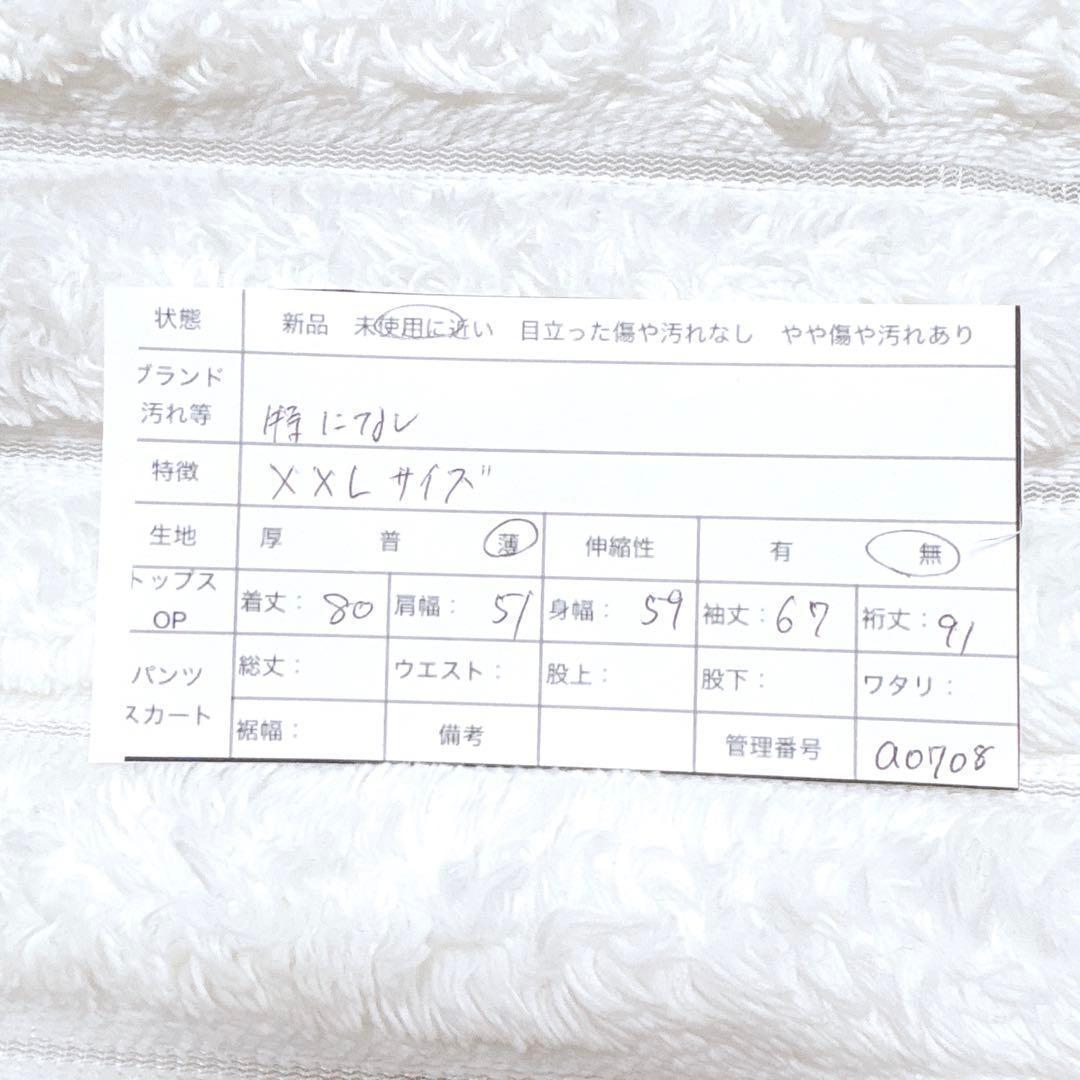 状態 新品 未使用に近い 目立った傷や汚れなし やや傷や汚れあり
ブランド
汚れ等 特になし
特徴 XXLサイズ
生地 厚 普 薄 伸縮性 有 無
トップス
OP 着丈: 80 肩幅: 51 身幅: 59 袖丈: 67 裄丈: 91
パンツ
スカート 総丈: ウエスト: 股上: 股下: ワタリ:
裾幅: 備考 管理番号 a0708